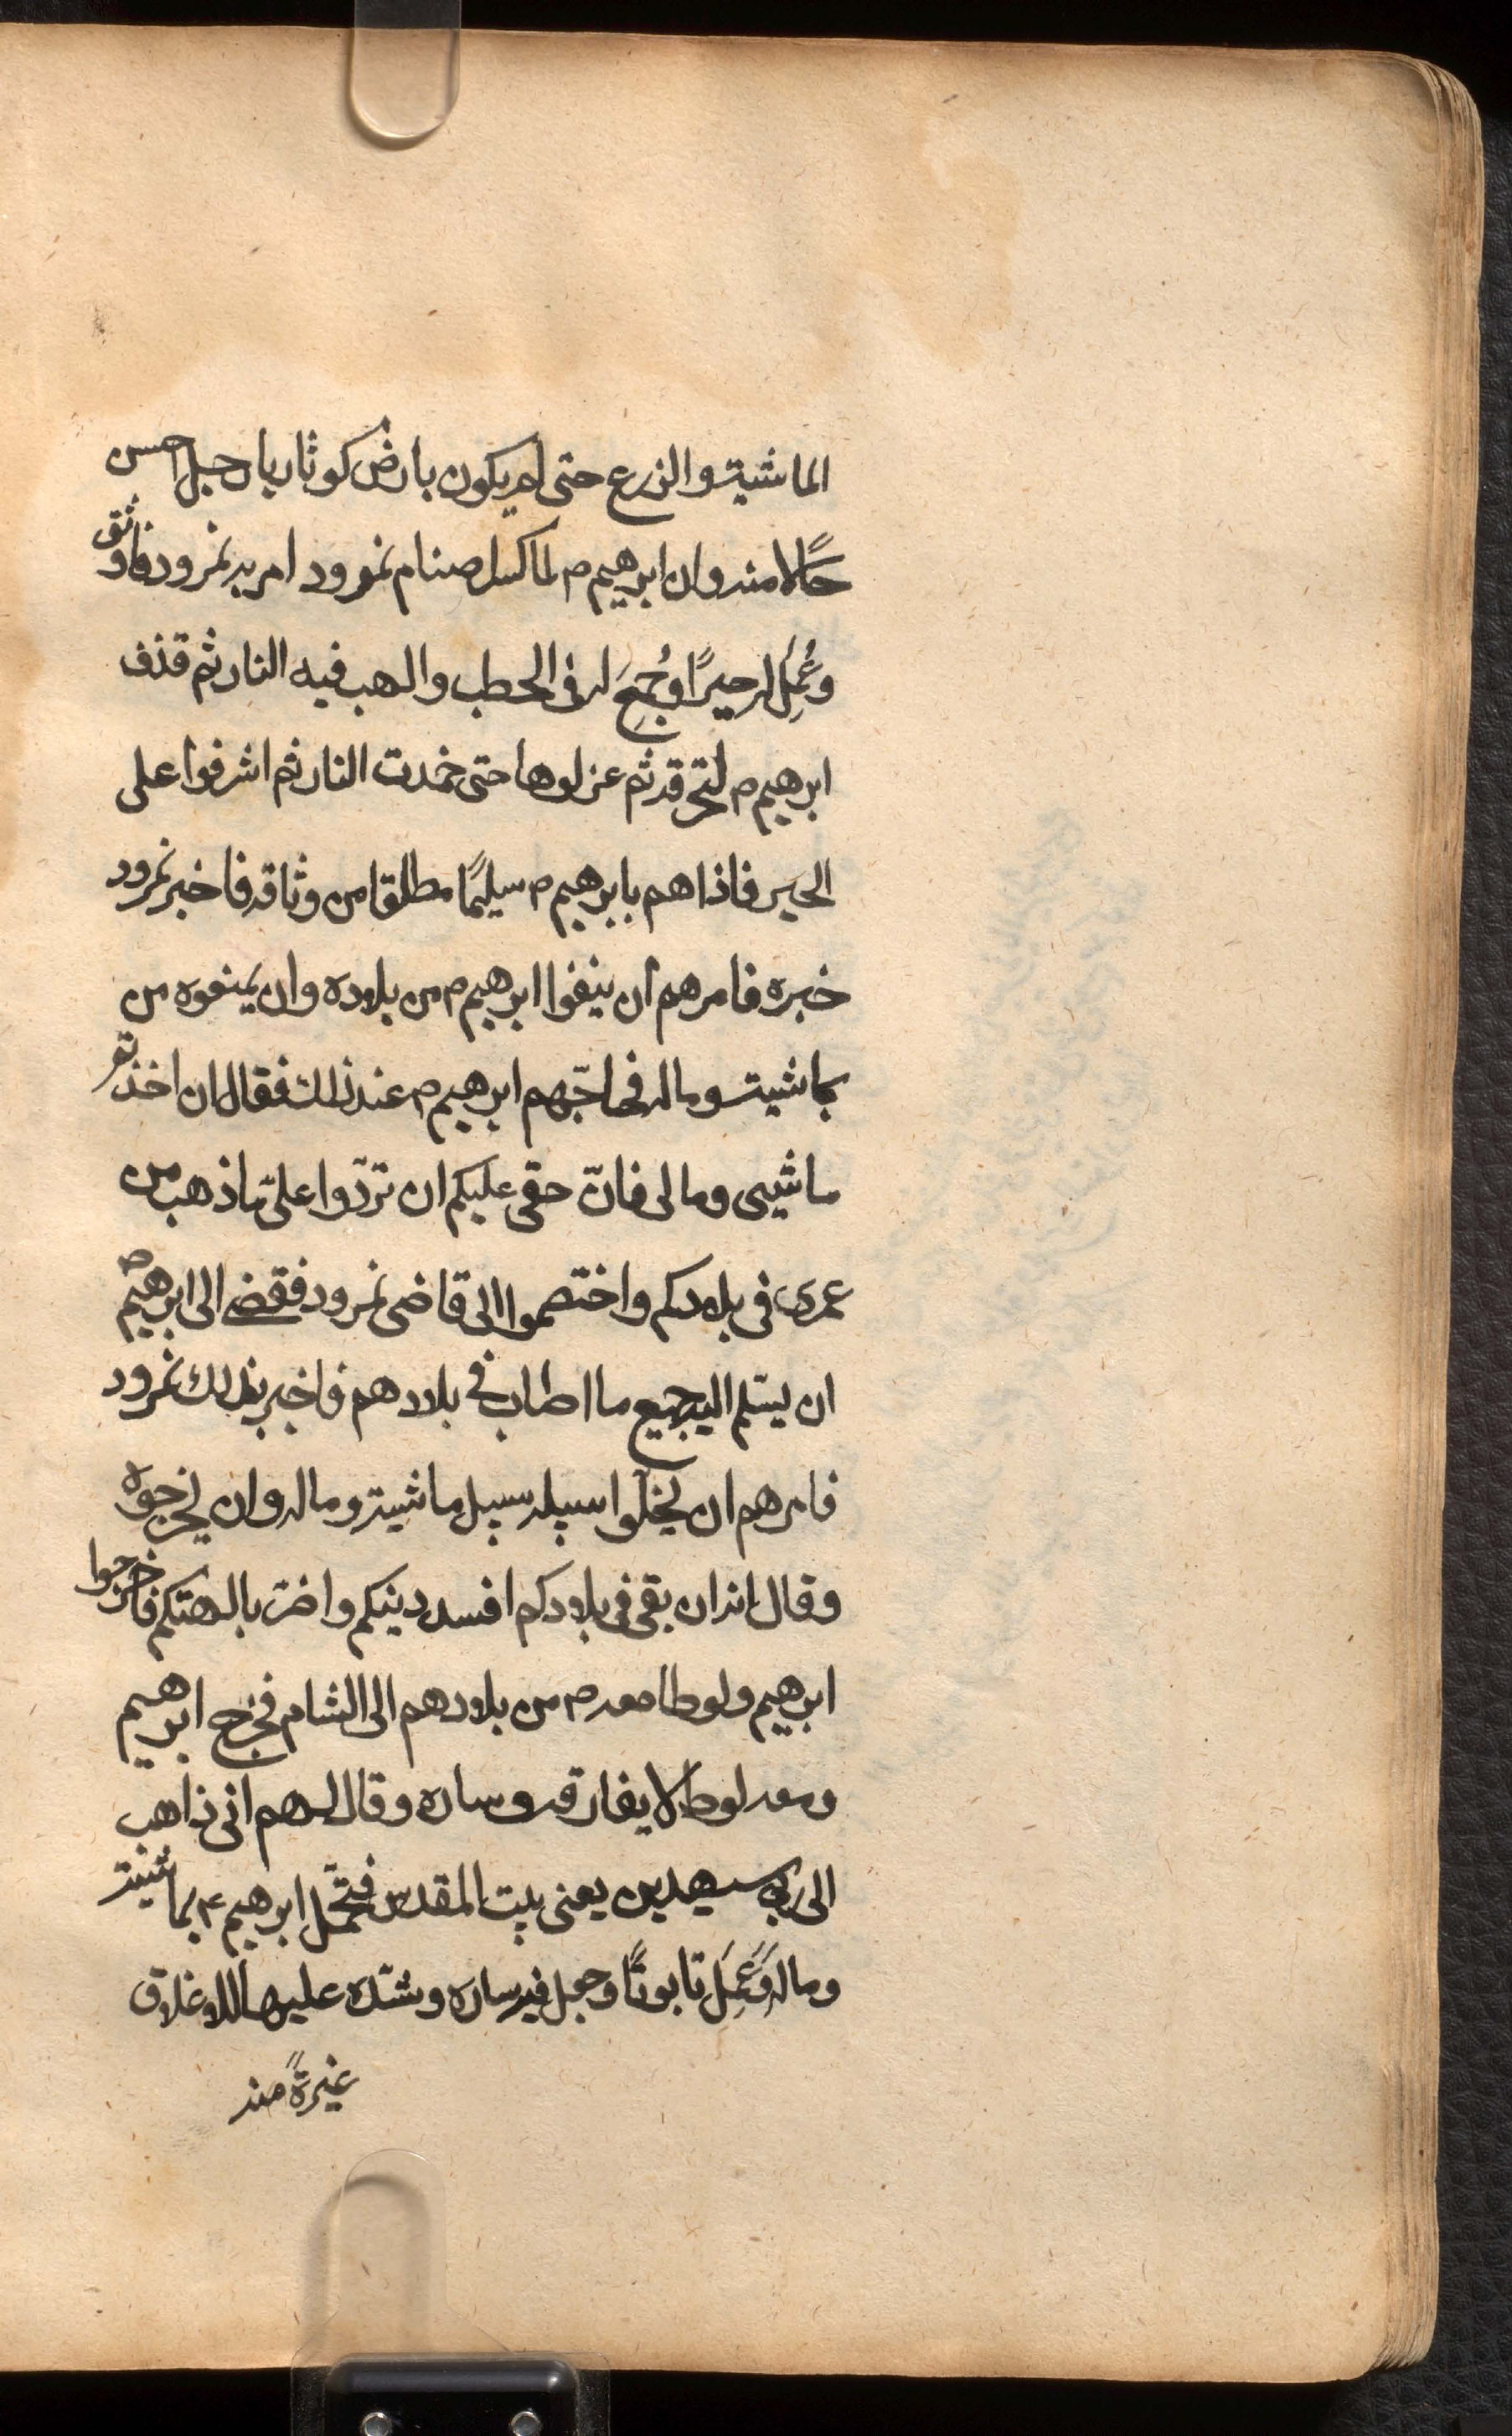 الماشية والزرع حتى لم يكون بارض كوثاريا رجل احسن
حَالًا منه وان ابرهيم ص لما كسر اصنام نمرود امر به نمرود فاوثق
وعُمِلَ له حيرًا وجُمِعَ له فى الحطب والهب فيه النار ثم قذف
ابرهيم ص لتحرقه ثم عزلوها حتى خمدت النار ثم اشرفوا على
الحير فاذا هم بابرهيم ص سليمًا مطلقا من وثاقه فاخبر نمرود
خبره فامرهم ان ينفوا ابرهيم ص من بلاده وان يمنعوه من
بماشيته وماله فحاجّهم ابرهيم ص عند ذلك فقال ان اخذتم
ماشيتى ومالى فانّ حقى عليكم ان تردّوا علىّ ما ذهب من
عمرى فى بلادكم واختصموا الى قاضى نمرود فقضى الى ابرهيم ص
ان يسلم اليه جميع ما اصاب فى بلادهم فاخبر بذلك نمرود
فامرهم ان يخلّوا سبيله سبيل ماشيته وماله وان يخرجوه
وقال انه ان بقى فى بلادكم افسد دينكم واضرّ بالهتكم فاخرجوا
ابرهيم ولوطا معه ص من بلادهم الى الشام فخرج ابرهيم
ومعه لوط لا يفارقه وساره وقال لهم انى ذاهب
الى ربى سيهدين يعنى بيت المقدس فتحمّل ابرهيم ع بماشيته
وماله وَعَمِلَ تابوتًا وجعل فيه ساره وشدّ عليها الاغلاق
غيرةً منه